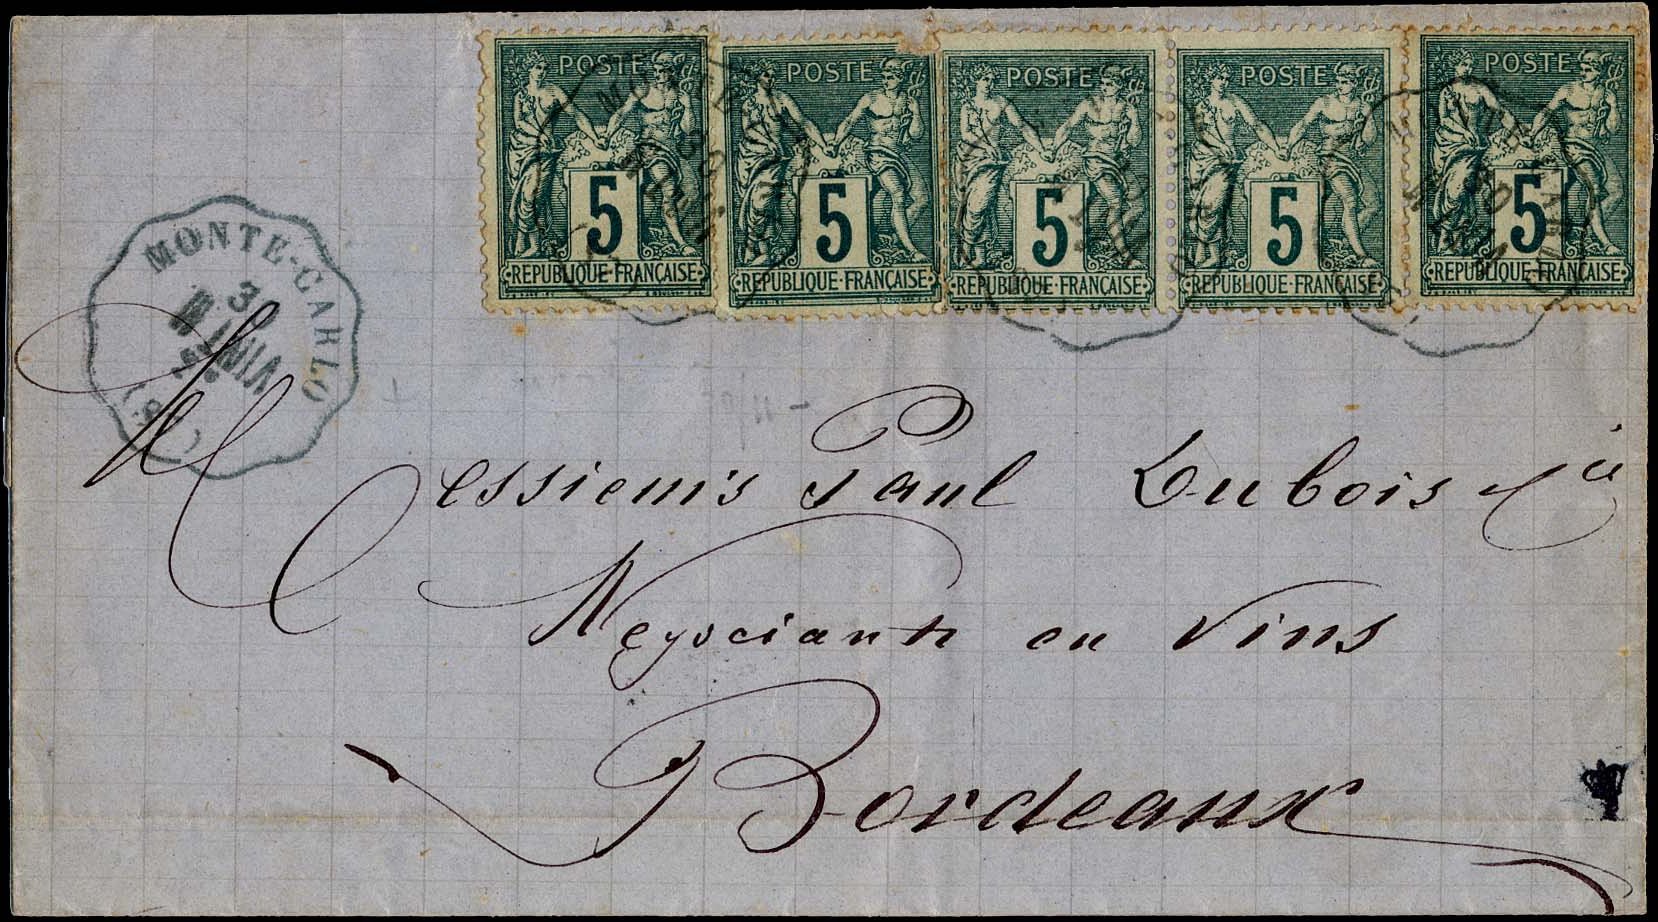 POSTE POSTE POSTE POSTE POSTE
5 5 5 5 5
REPUBLIQUE FRANÇAISE REPUBLIQUE FRANÇAISE REPUBLIQUE FRANÇAISE REPUBLIQUE FRANÇAISE REPUBLIQUE FRANÇAISE
MONTE-CARLO
30
Messieurs Paul Dubois & Cie
Negociants en Vins
Bordeaux